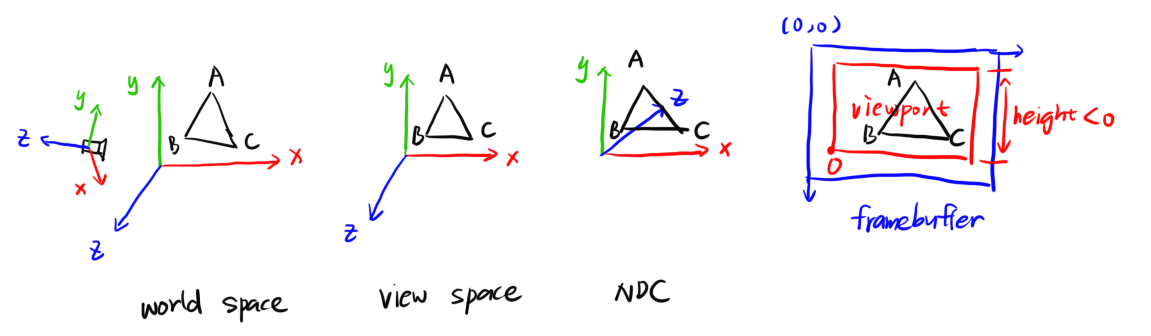 (0,0)
y
z
x
y
A
B
C
x
z
world space
y
A
B
C
x
z
view space
y
A
z
B
C
x
NDC
A
viewport
B
C
O
height<0
framebuffer